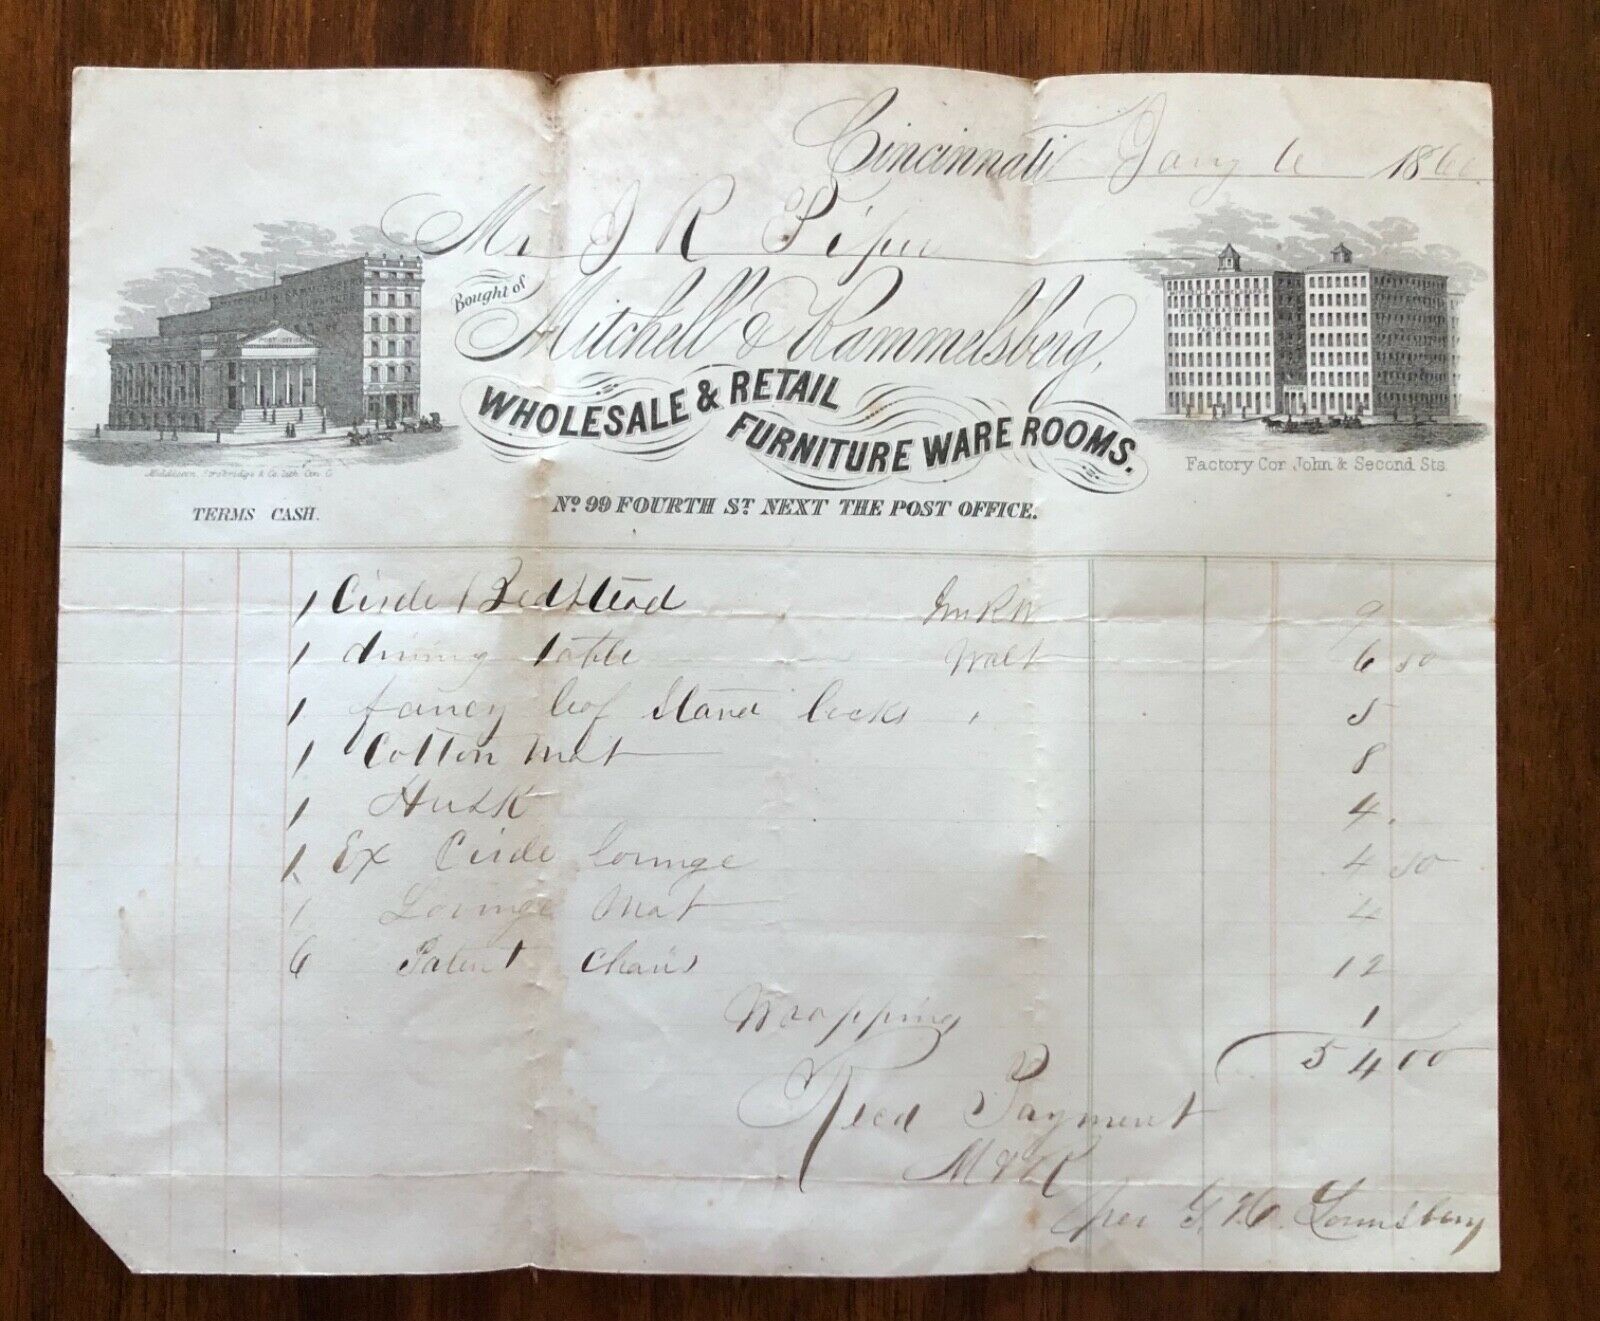 Cincinnati Jany 6 1860
Mr J R Piper
Bought of
Mitchell & Rammelsberg,
WHOLESALE & RETAIL
FURNITURE WARE ROOMS.
POST OFFICE
FURNITURE
FACTORY
Middleton, Strobridge & Co. Lith. Cin. O.
Factory Cor. John & Second Sts.
TERMS CASH.
No. 99 FOURTH ST. NEXT THE POST OFFICE.
1 Circle Bedstead 9
1 dining table Walt 6 50
1 fancy leaf Stand locks " 5
1 Cotton Mat 8
1 Husk 4.
1 Ex Circle lounge 4 50
1 Lounge Mat 4
6 Patent Chairs 12
Wrapping 1
54 00
Recd Payment
M & R
per G. W. Lounsbery